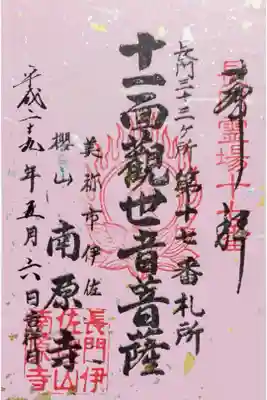 奉拝
長門三十三ヶ所 第十七番札所
十一面觀世音菩薩
美祢市伊佐
櫻山 南原寺
平成二十九年五月六日
長門伊
佐桜山
南原寺